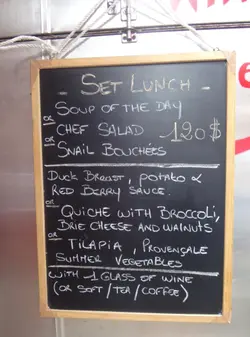 - SET LUNCH -
SOUP OF THE DAY
OR
CHEF SALAD 120$
OR
SNAIL BOUCHÉES
DUCK BREAST, POTATO &
RED BERRY SAUCE.
OR
QUICHE WITH BROCCOLI,
BRIE CHEESE AND WALNUTS
OR
TILAPIA, PROVENÇALE
SUMMER VEGETABLES
WITH 1 GLASS OF WINE
(OR SOFT/TEA/COFFEE)